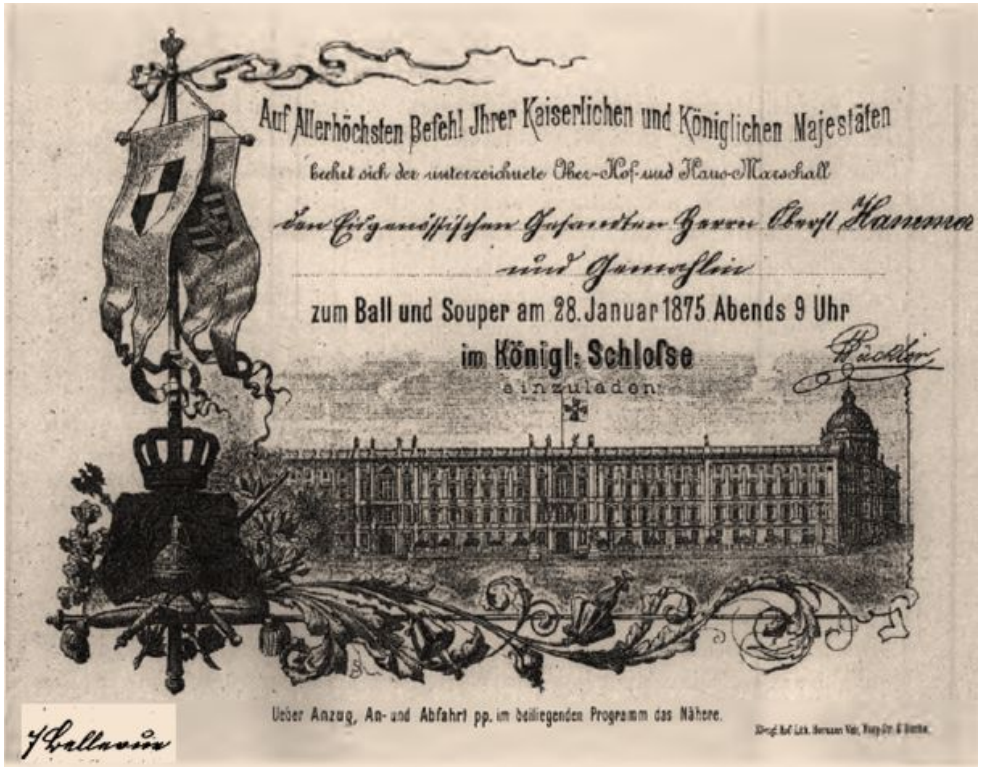 Auf Allerhöchsten Befehl Jhrer Kaiserlichen und Königlichen Majestäten
beehrt sich der unterzeichnete Ober-Hof-und Haus-Marschall
den Eidgenössischen Gesandten Herrn Oberst Hammer
und Gemahlin
zum Ball und Souper am 28. Januar 1875 Abends 9 Uhr
im Königl: Schloſse
einzuladen.
Pückler
Ueber Anzug, An- und Abfahrt pp. im beiliegenden Programm das Nähere.
Königl. Hof Lith. Hermann
7 Bellevue